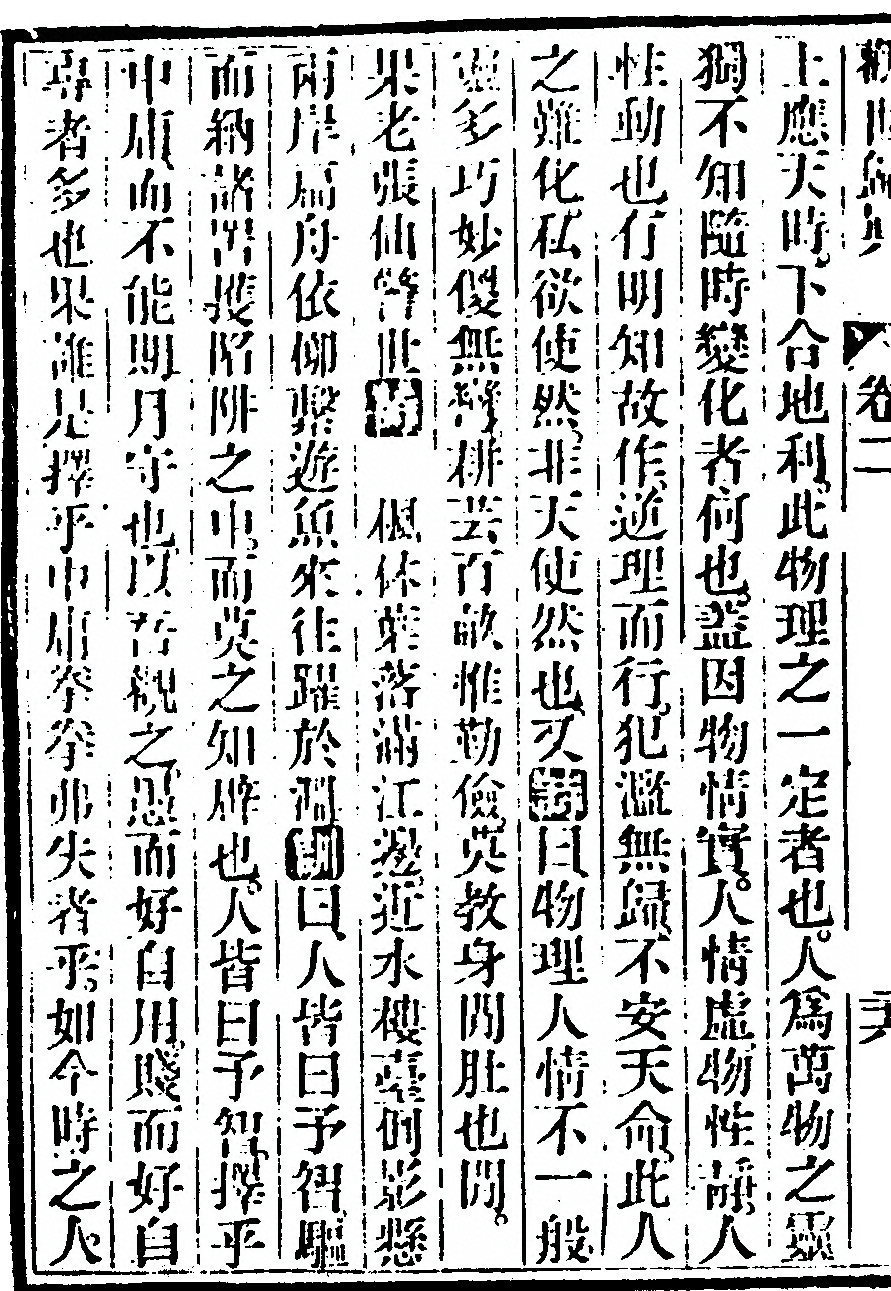 卷二
上應天時下合地利此物理之一定者也人爲萬物之靈
獨不知隨時變化者何也蓋因物情實人情虛物性靜人
性動也有明知故作逆理而行犯濫無歸不安天命此人
之難化私欲使然非天使然也又詩曰物理人情不一般
靈多巧妙儍無灣耕芸百畝惟勤儉莫教身閒肚也閒
果老張仙警世詩 楓林葉落滿江邊近水樓臺倒影懸
兩岸扁舟依柳繫遊魚來往躍於淵訓曰人皆曰予智驅
而納諸罟擭陷阱之中而莫之知辟也人皆曰予智擇乎
中庸而不能期月守也以吾觀之愚而好自用賤而好自
專者多也果誰是擇乎中庸拳拳弗失者乎如今時之人